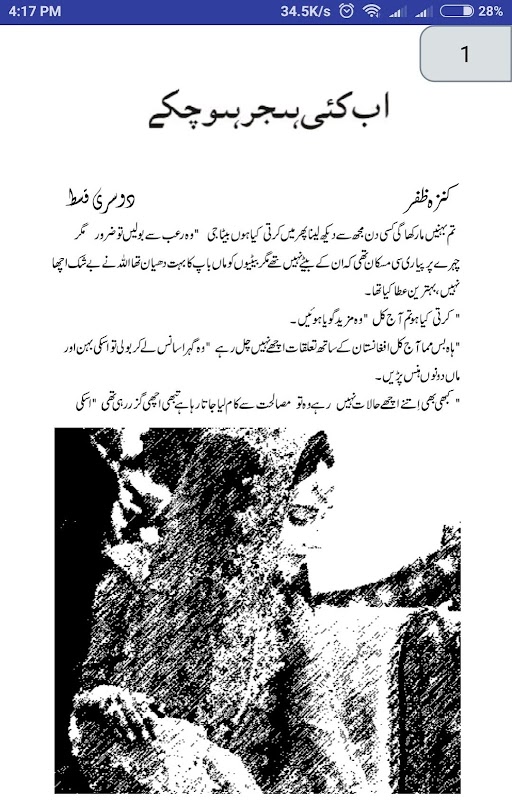 4:17 PM 34.5K/s 28%
1
اب کئی ہجر ہو چکے
کنزہ ظفر دوسری قسط
تم بہنیں مار کھا گی کسی دن مجھ سے دیکھ لینا پھر میں کرتی کیا ہوں بیٹا جی "وہ رعب سے بولیں تو ضرور مگر
چہرے پر پیاری سی مسکان تھی کہ ان کے بیٹے نہیں تھے مگر بیٹیوں کو ماں باپ کا بہت دھیان تھا اللہ نے بے شک اچھا
نہیں، بہترین عطا کیا تھا۔
"کرتی کیا ہو تم آج کل "وہ مزید گویا ہوئیں۔
"ہاہ بس مما آج کل افغانستان کے ساتھ تعلقات اچھے نہیں چل رہے "وہ گہرا سانس لے کر بولی تو اسکی بہن اور
ماں دونوں ہنس پڑیں۔
"کبھی بھی اتنے اچھے حالات نہیں رہے وہ تو مصالحت سے کام لیا جاتا رہا ہے تبھی اچھی گزر رہی تھی "اسکی